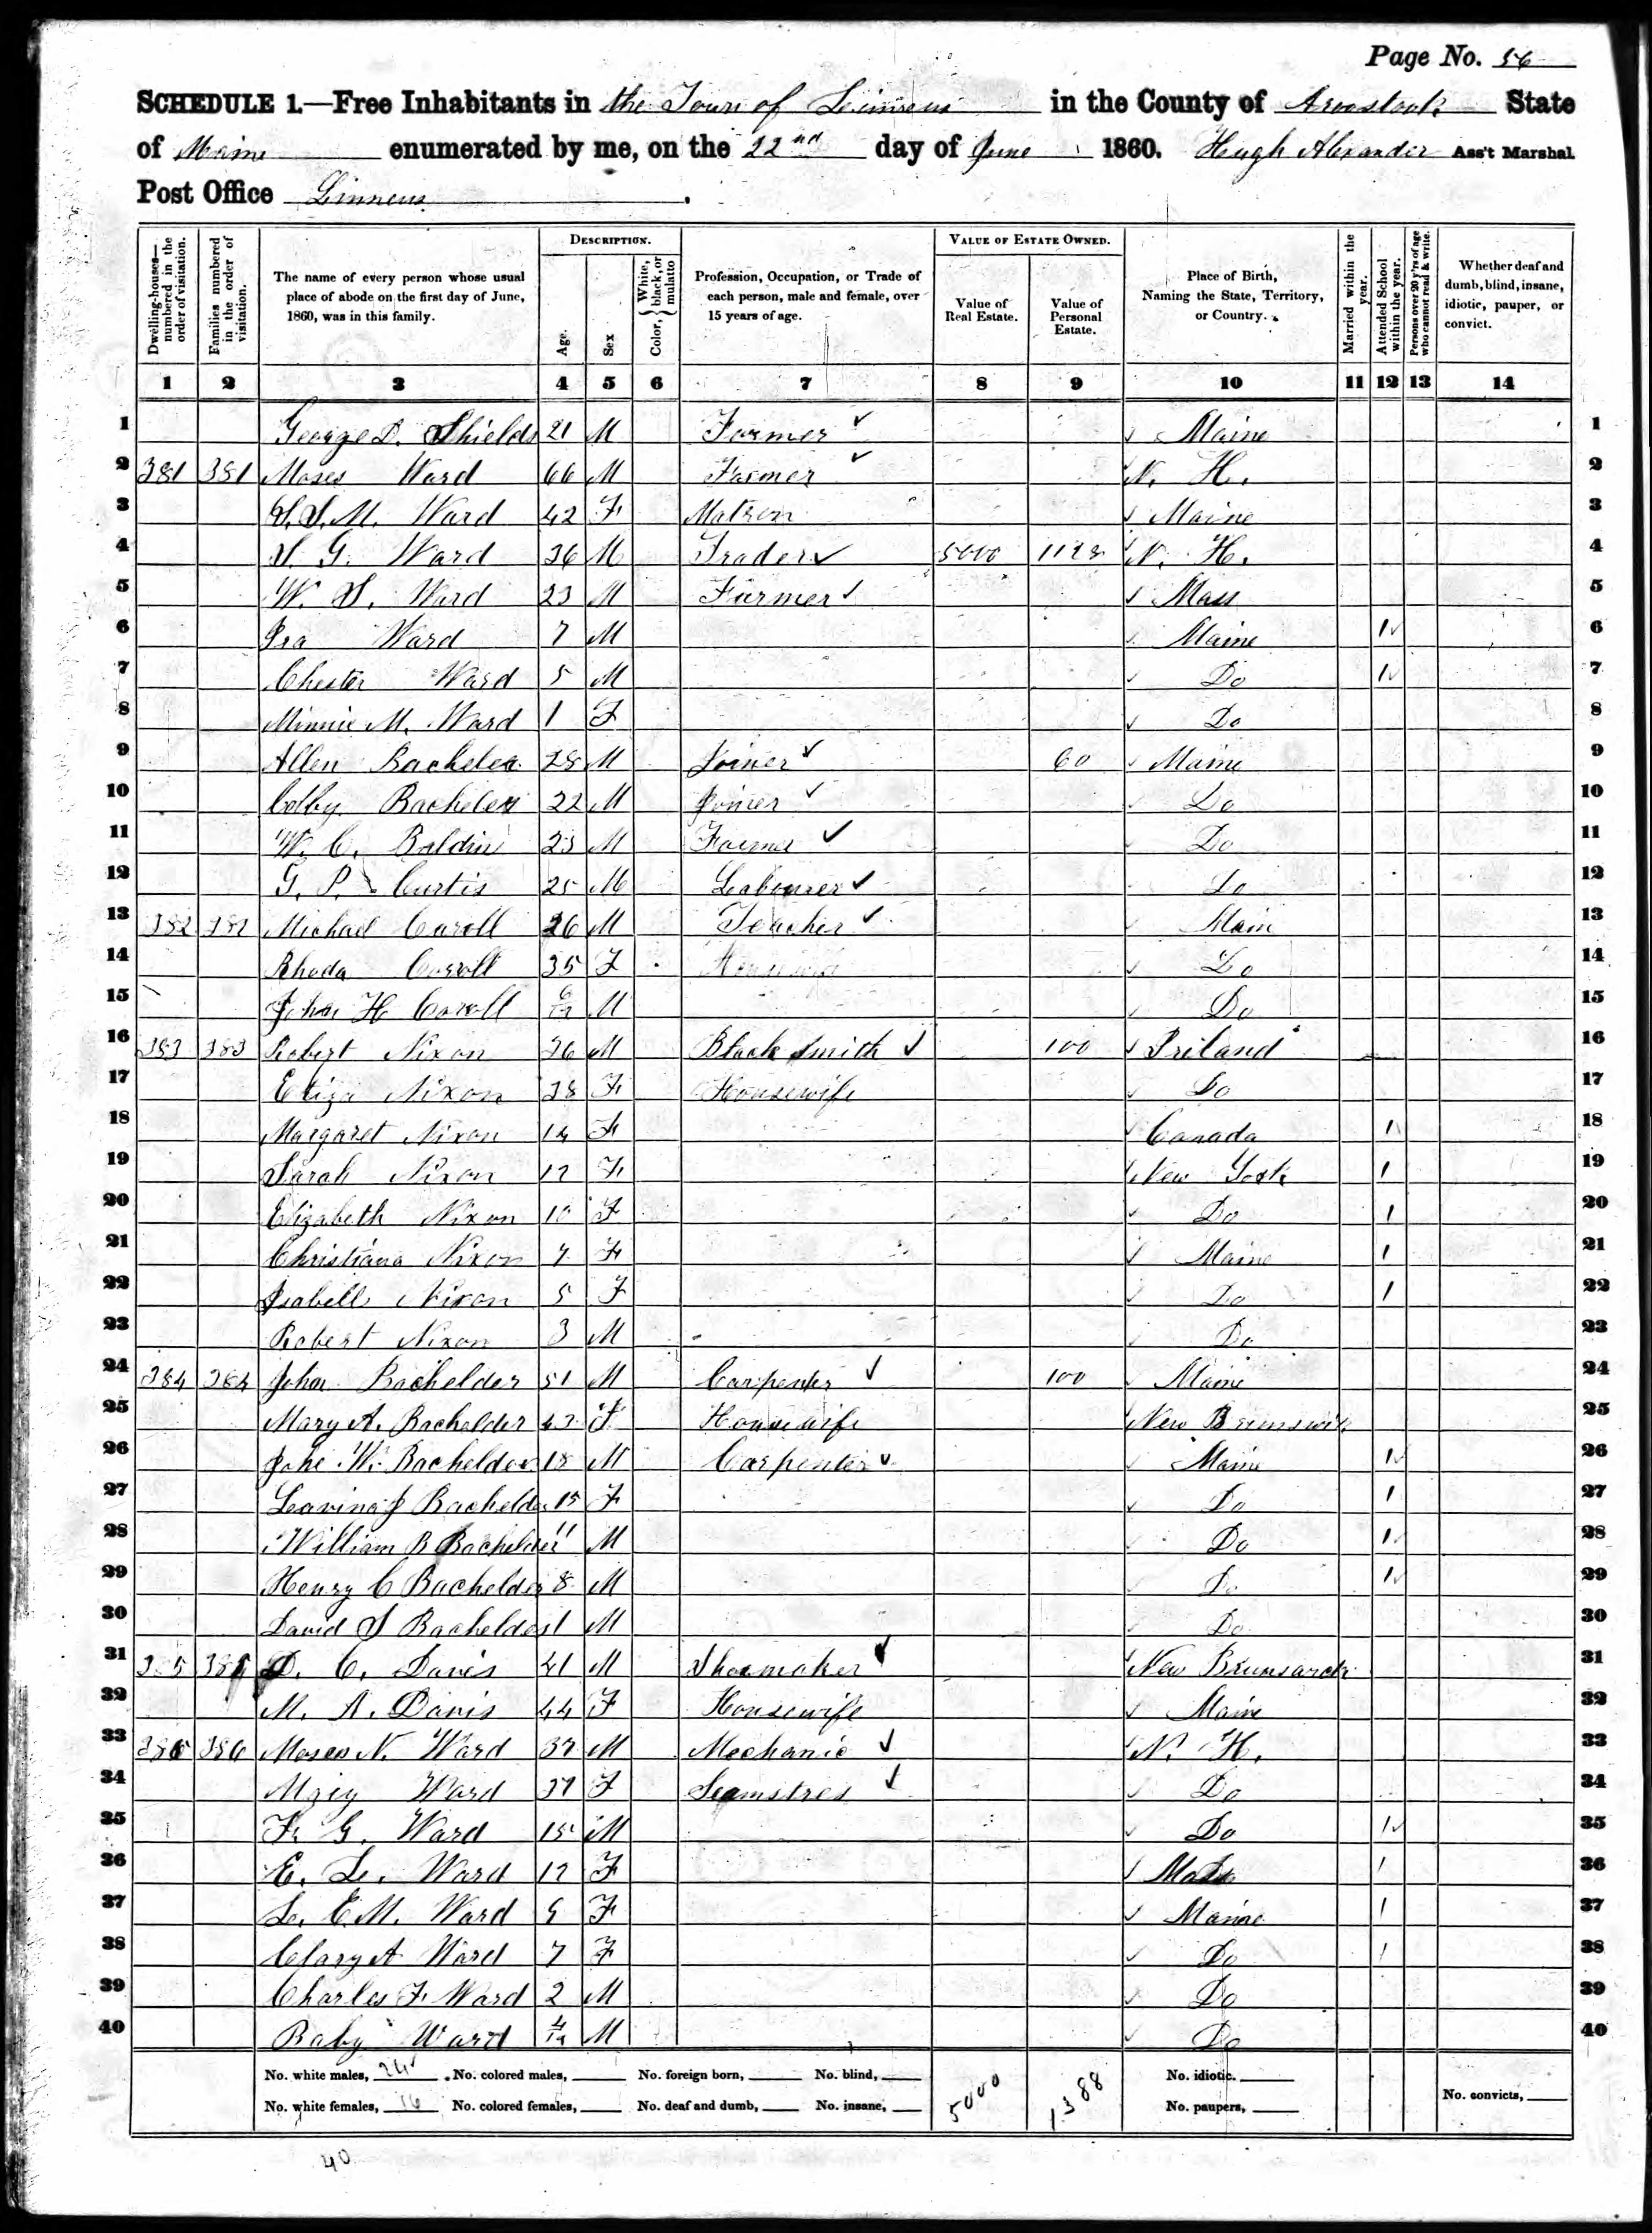 Page No. 56
SCHEDULE 1.—Free Inhabitants in the Town of Linneus in the County of Aroostook State
of Maine enumerated by me, on the 22nd day of June 1860. Hugh Alexander Ass't Marshal
Post Office Linneus.
DESCRIPTION. VALUE OF ESTATE OWNED.
Dwelling-houses—numbered in the order of visitation. Families numbered in the order of visitation. The name of every person whose usual place of abode on the first day of June, 1860, was in this family. Age. Sex Color, White, black, or mulatto Profession, Occupation, or Trade of each person, male and female, over 15 years of age. Value of Real Estate. Value of Personal Estate. Place of Birth, Naming the State, Territory, or Country. Married within the year. Attended School within the year. Persons over 20 y'rs of age who cannot read & write. Whether deaf and dumb, blind, insane, idiotic, pauper, or convict.
1 2 3 4 5 6 7 8 9 10 11 12 13 14
1 George D. Shields 21 M Farmer ✓ Maine 1
2 381 381 Moses Ward 66 M Farmer ✓ N. H. 2
3 S. S. M. Ward 42 F Matron Maine 3
4 S. G. Ward 36 M Trader ✓ 5000 1128 N. H. 4
5 W. S. Ward 23 M Farmer ✓ Mass 5
6 Ira Ward 7 M Maine 1 6
7 Chester Ward 5 M Do 1 7
8 Minnie M. Ward 1 F Do 8
9 Allen Bacheler 28 M Joiner ✓ 60 Maine 9
10 Colby Bacheler 22 M Joiner ✓ Do 10
11 W. C. Boldin 23 M Farmer ✓ Do 11
12 G. P. Curtis 25 M Labourer ✓ Do 12
13 382 382 Michael Caroll 26 M Teacher ✓ Main 13
14 Rhoda Carroll 35 F Housewife Do 14
15 John H Caroll 6/12 M Do 15
16 383 383 Robert Nixon 36 M Black Smith ✓ 100 Ireland 16
17 Eliza Nixon 38 F Housewife Do 17
18 Margaret Nixon 14 F Canada 1 18
19 Sarah Nixon 12 F New York 1 19
20 Elizabeth Nixon 10 F Do 1 20
21 Christiana Nixon 7 F Maine 1 21
22 Isabell Nixon 5 F Do 1 22
23 Robert Nixon 3 M Do 23
24 384 384 John Bachelder 51 M Carpenter ✓ 100 Maine 24
25 Mary A. Bachelder 43 F Housewife New Brunswik 25
26 John W. Bachelder 18 M Carpenter ✓ Maine 1 26
27 Lavina J Bachelder 15 F Do 1 27
28 William B Bachelder 11 M Do 1 28
29 Henry C Bachelder 8 M Do 1 29
30 David S Bachelder 1 M Do 30
31 385 385 D. C. Davis 41 M Shoemaker ✓ New Brunswick 31
32 M. A. Davis 44 F Housewife Maine 32
33 386 386 Moses N. Ward 37 M Mechanic ✓ N. H. 33
34 Mary Ward 37 F Seamstres ✓ Do 34
35 F. G. Ward 15 M Do 1 35
36 E. L. Ward 12 F Mass 1 36
37 L. E. M. Ward 9 F Maine 1 37
38 Clary A Ward 7 F Do 1 38
39 Charles F. Ward 2 M Do 39
40 Baby Ward 4/12 M Do 40
No. white males, 24 No. colored males, No. foreign born, No. blind, 5000 1388 No. idiotic. No. convicts,
No. white females, 16 No. colored females, No. deaf and dumb, No. insane, No. paupers,
40